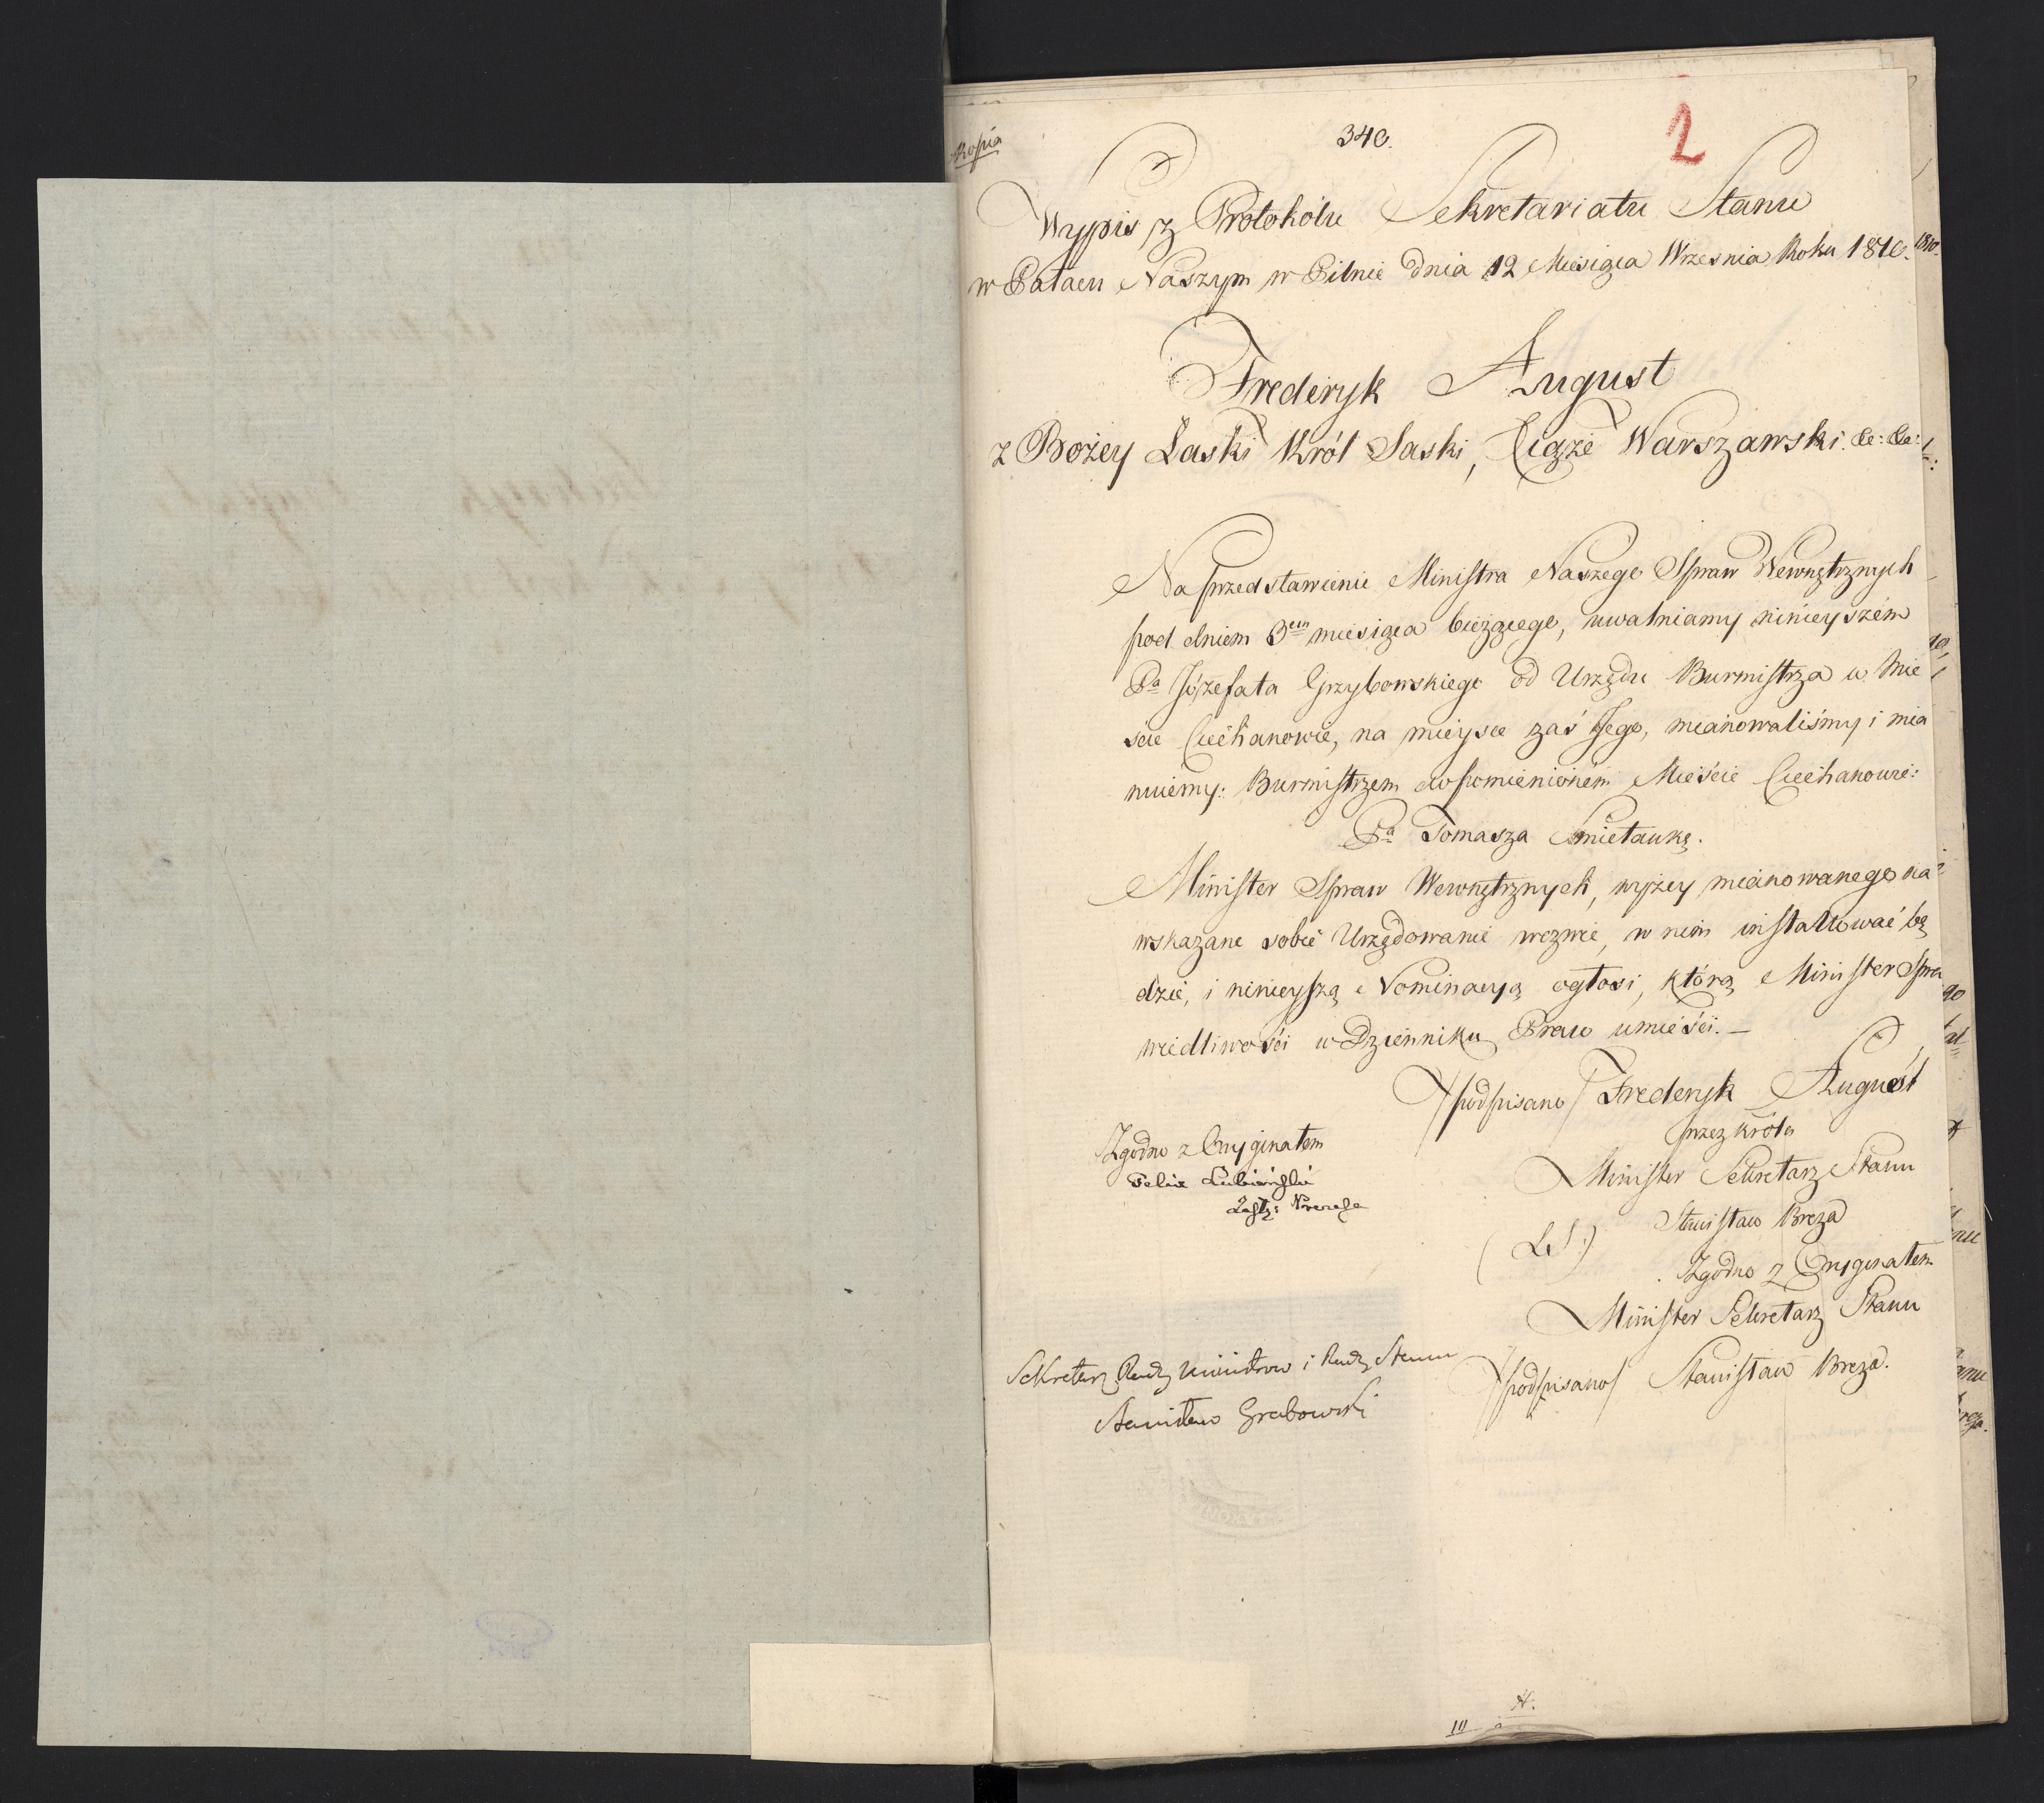 Kopia
340.
2
Wypis z Protokółu Sekretariatu Stanu
w Pałacu Naszym w Pilnic dnia 12 Miesiąca Wrzesnia Roku 1810.
Frederyk August
z Bożey Łaski Król Saski, Xiąże Warszawski. &c: &c:
Na przedstawienie Ministra Naszego Spraw Wewnętrznych
pod dniem 3em miesiąca bieżącego, uwalniamy ninieyszém
Pa Józefata Grzybowskiego od Urzędu Burmistrza w Mie
scie Ciechanowie, na mieysce zaś Jego, mianowaliśmy i mia
nuiemy: Burmistrzem w spomienioném Mieście Ciechanowie:
Pa Tomasza Smietankę.
Minister Spraw Wewnętrznych, wyżey mianowanego na
wskazane sobie Urzędowanie wezwie, w nim installować bę
dzie, i ninieyszą Nominacyą ogłosi, którą Minister Spra
wiedliwości w Dzienniku Praw umieści. —
/podpisano/ Frederyk August
przez Króla
Minister Sekretarz Stanu
(L.S.) Stanisław Breza
Zgodno z Oryginałem
Minister Sekretarz Stanu
/podpisano/ Stanisław Breza.
Zgodno z Oryginałem
Felix Łubieński
Sekretarz Rady Ministrow i Rady Stanu
Stanisław Grabowski